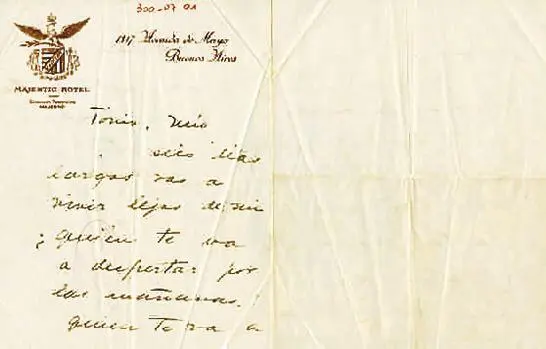 300-07 01
1317 Avenida de Mayo
Buenos Aires
MAJESTIC HOTEL
Tonio, mio
seis días
largos vas a
vivir lejos de mi
¿quién te va
a despertar por
las mañanas!
quien te va a